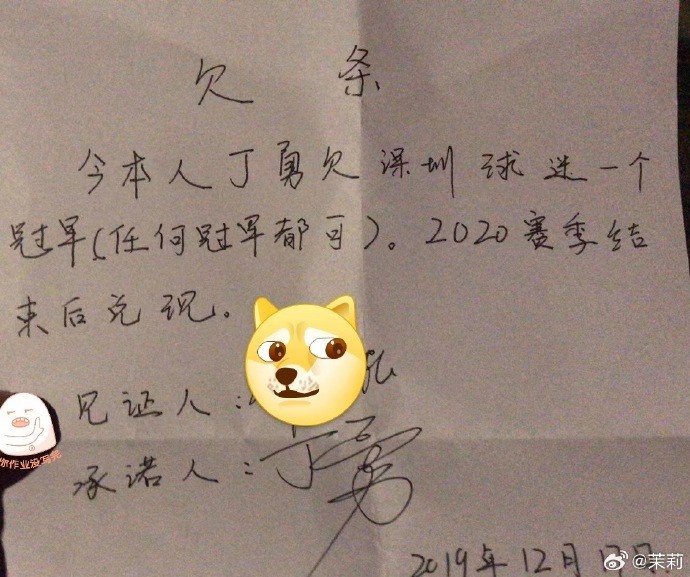 欠条
今本人丁勇欠深圳球迷一个
冠军(任何冠军都可)。2020赛季结
束后兑现。
见证人:
承诺人:丁勇
2019年12月17日
你作业没写完
@茉莉